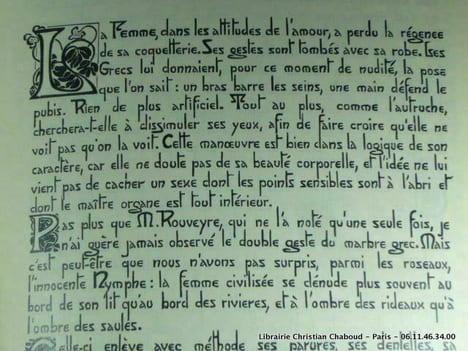 La Femme, dans les attitudes de l'amour, a perdu la régence
de sa coquetterie. Ses gestes sont tombés avec sa robe. Les
Grecs lui donnaient, pour ce moment de nudité, la pose
que l'on sait : un bras barre les seins, une main défend le
pubis. Rien de plus artificiel. Tout au plus, comme l'autruche,
cherchera-t-elle à dissimuler ses yeux, afin de faire croire qu'elle ne
voit pas qu'on la voit. Cette manœuvre est bien dans la logique de son
caractère, car elle ne doute pas de sa beauté corporelle, et l'idée ne lui
vient pas de cacher un sexe dont les points sensibles sont à l'abri et
dont le maître organe est tout intérieur.
Pas plus que M. Rouveyre, qui ne l'a noté qu'une seule fois, je
n'ai guère jamais observé le double geste du marbre grec. Mais
c'est peut-être que nous n'avons pas surpris, parmi les roseaux,
l'innocente Nymphe : la femme civilisée se dénude plus souvent au
bord de son lit qu'au bord des rivières, et à l'ombre des rideaux qu'à
l'ombre des saules.
Celle-ci enlève avec méthode ses parures, ses dentelles, sa
Librairie Christian Chaboud - Paris - 06.11.46.34.00